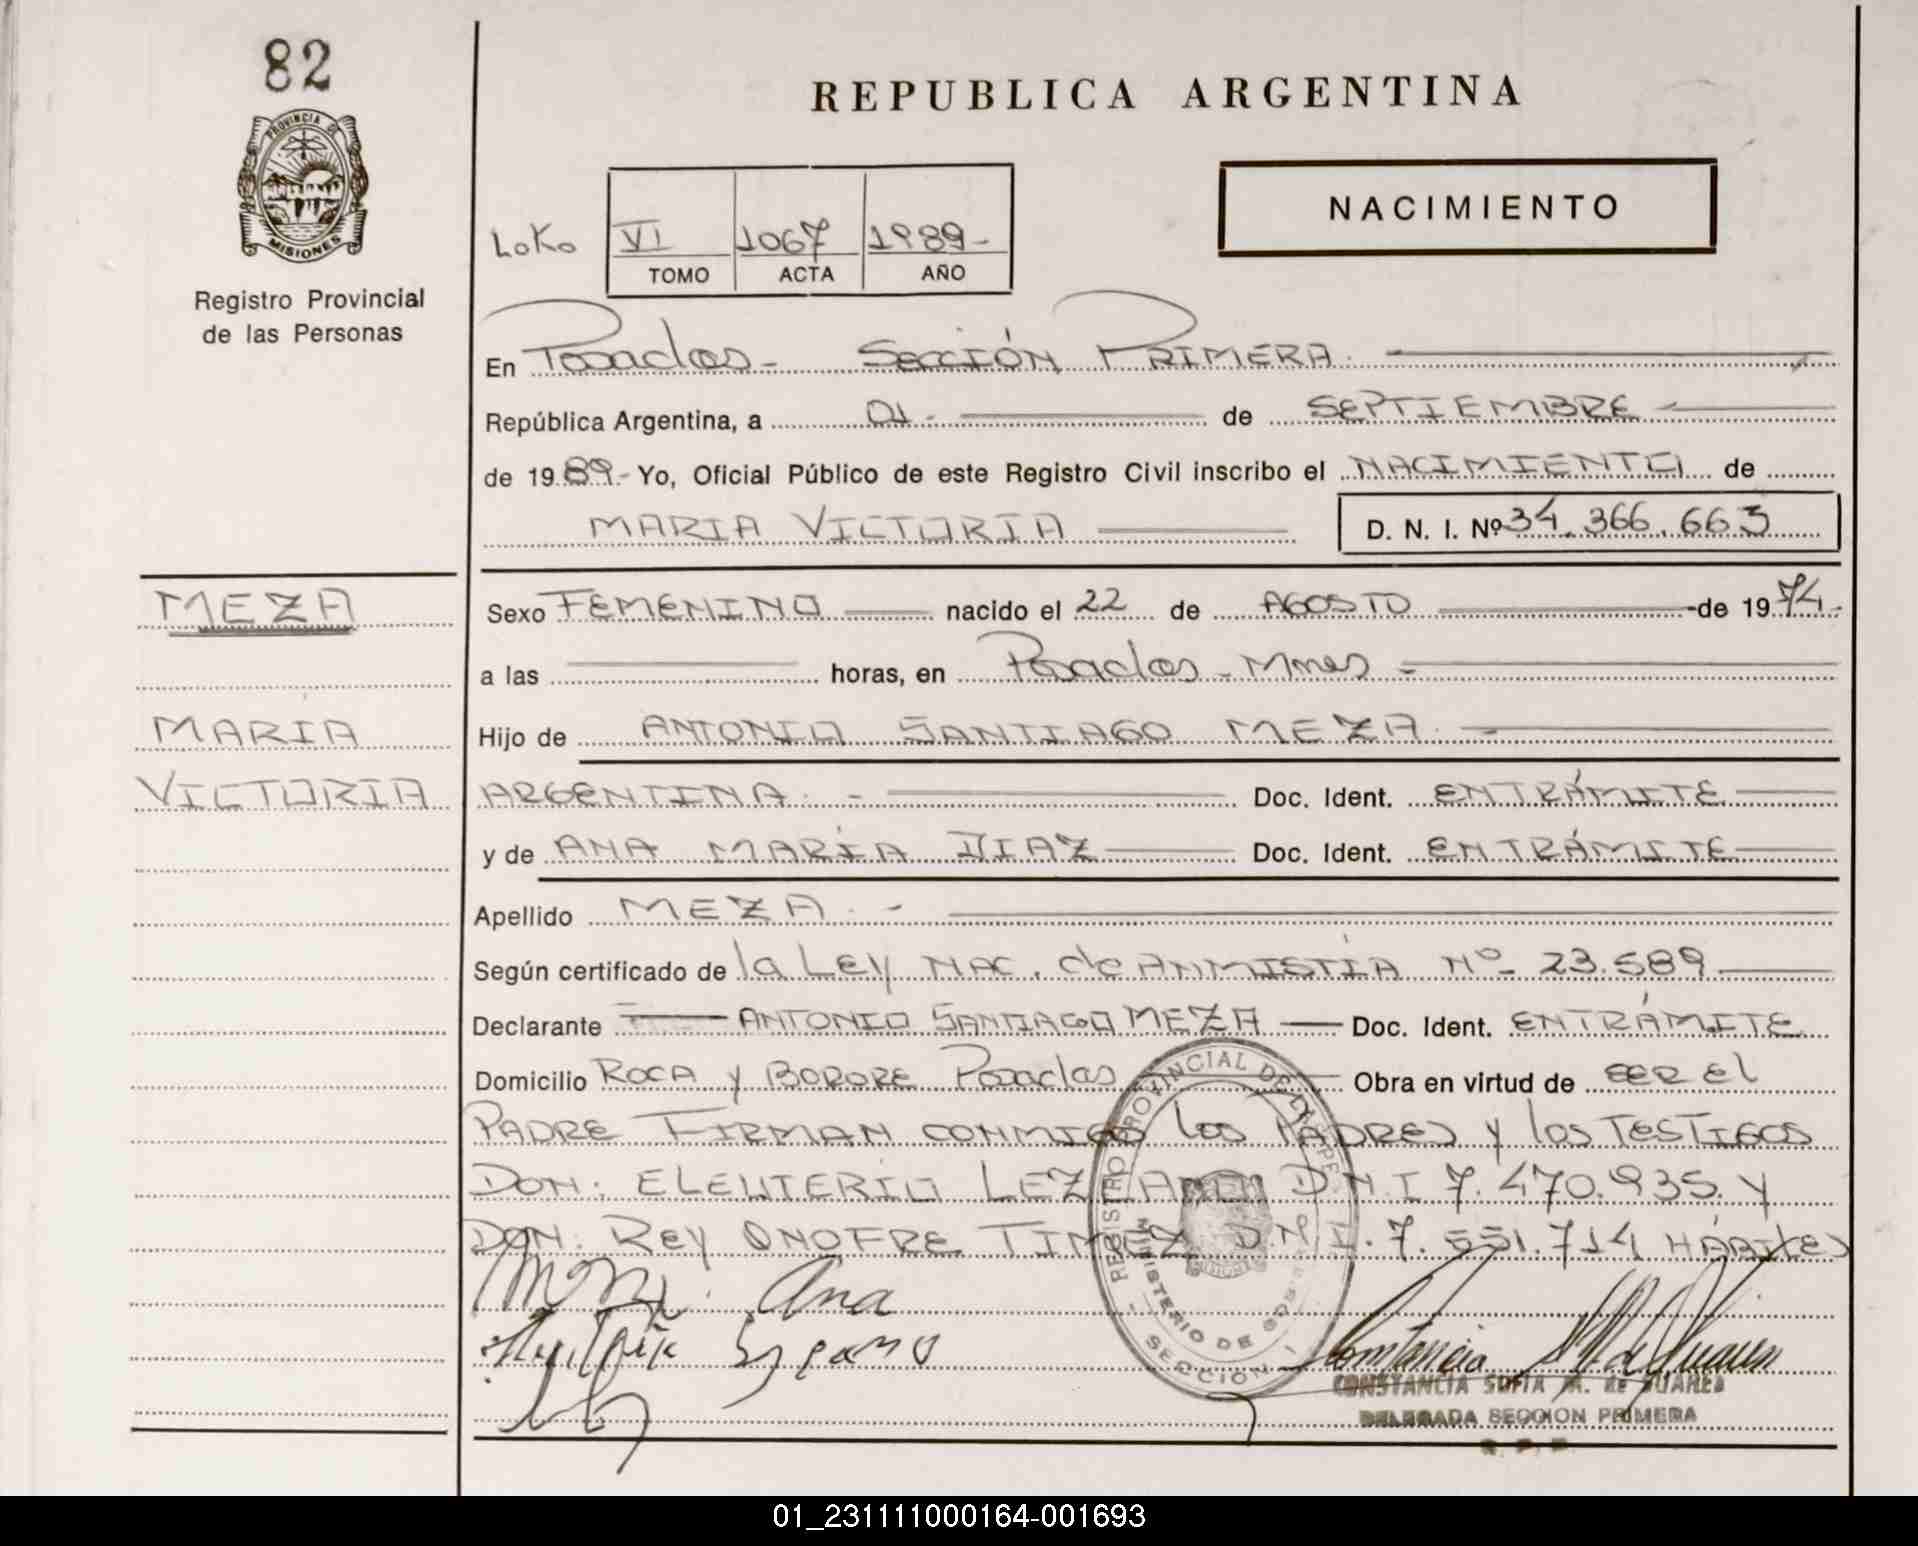 82
REPUBLICA ARGENTINA
PROVINCIA DE MISIONES
Registro Provincial
de las Personas
NACIMIENTO
LoKo VI 1067 1989-
TOMO ACTA AÑO
En Posadas- SECCIÓN PRIMERA.
República Argentina, a 01- de SEPTIEMBRE-
de 1989.- Yo, Oficial Público de este Registro Civil inscribo el NACIMIENTO de
MARIA VICTORIA D. N. I. Nº 34.366.663
MEZA
Sexo FEMENINO nacido el 22 de AGOSTO de 1974-
a las horas, en Posadas - Mnes -
MARIA
Hijo de ANTONIO SANTIAGO MEZA. -
VICTORIA
ARGENTINA. - Doc. Ident. ENTRÁMITE
y de ANA MARÍA DIAZ Doc. Ident. ENTRÁMITE
Apellido MEZA. -
Según certificado de la LEY NAC. de ANMISTIA Nº 23.589
Declarante ANTONIO SANTIAGO MEZA Doc. Ident. ENTRÁMITE
Domicilio ROCA y BORORE Posadas Obra en virtud de SER El
PADRE FIRMAN CONMIGO los PADRES y los TESTIGOS
DON. ELEUTERIO LEZCANO D.N.I 7.470.935. y
DON. REY ONOFRE D.N.I. 7.551.714 HÁBILES
Ana
REGISTRO PROVINCIAL DE LAS PERS
MINISTERIO DE GOB
SECCIÓN 1
Constancia
CONSTANCIA SOFIA M. de SUAREZ
DELEGADA SECCION PRIMERA
R. P. P.
01_231111000164-001693